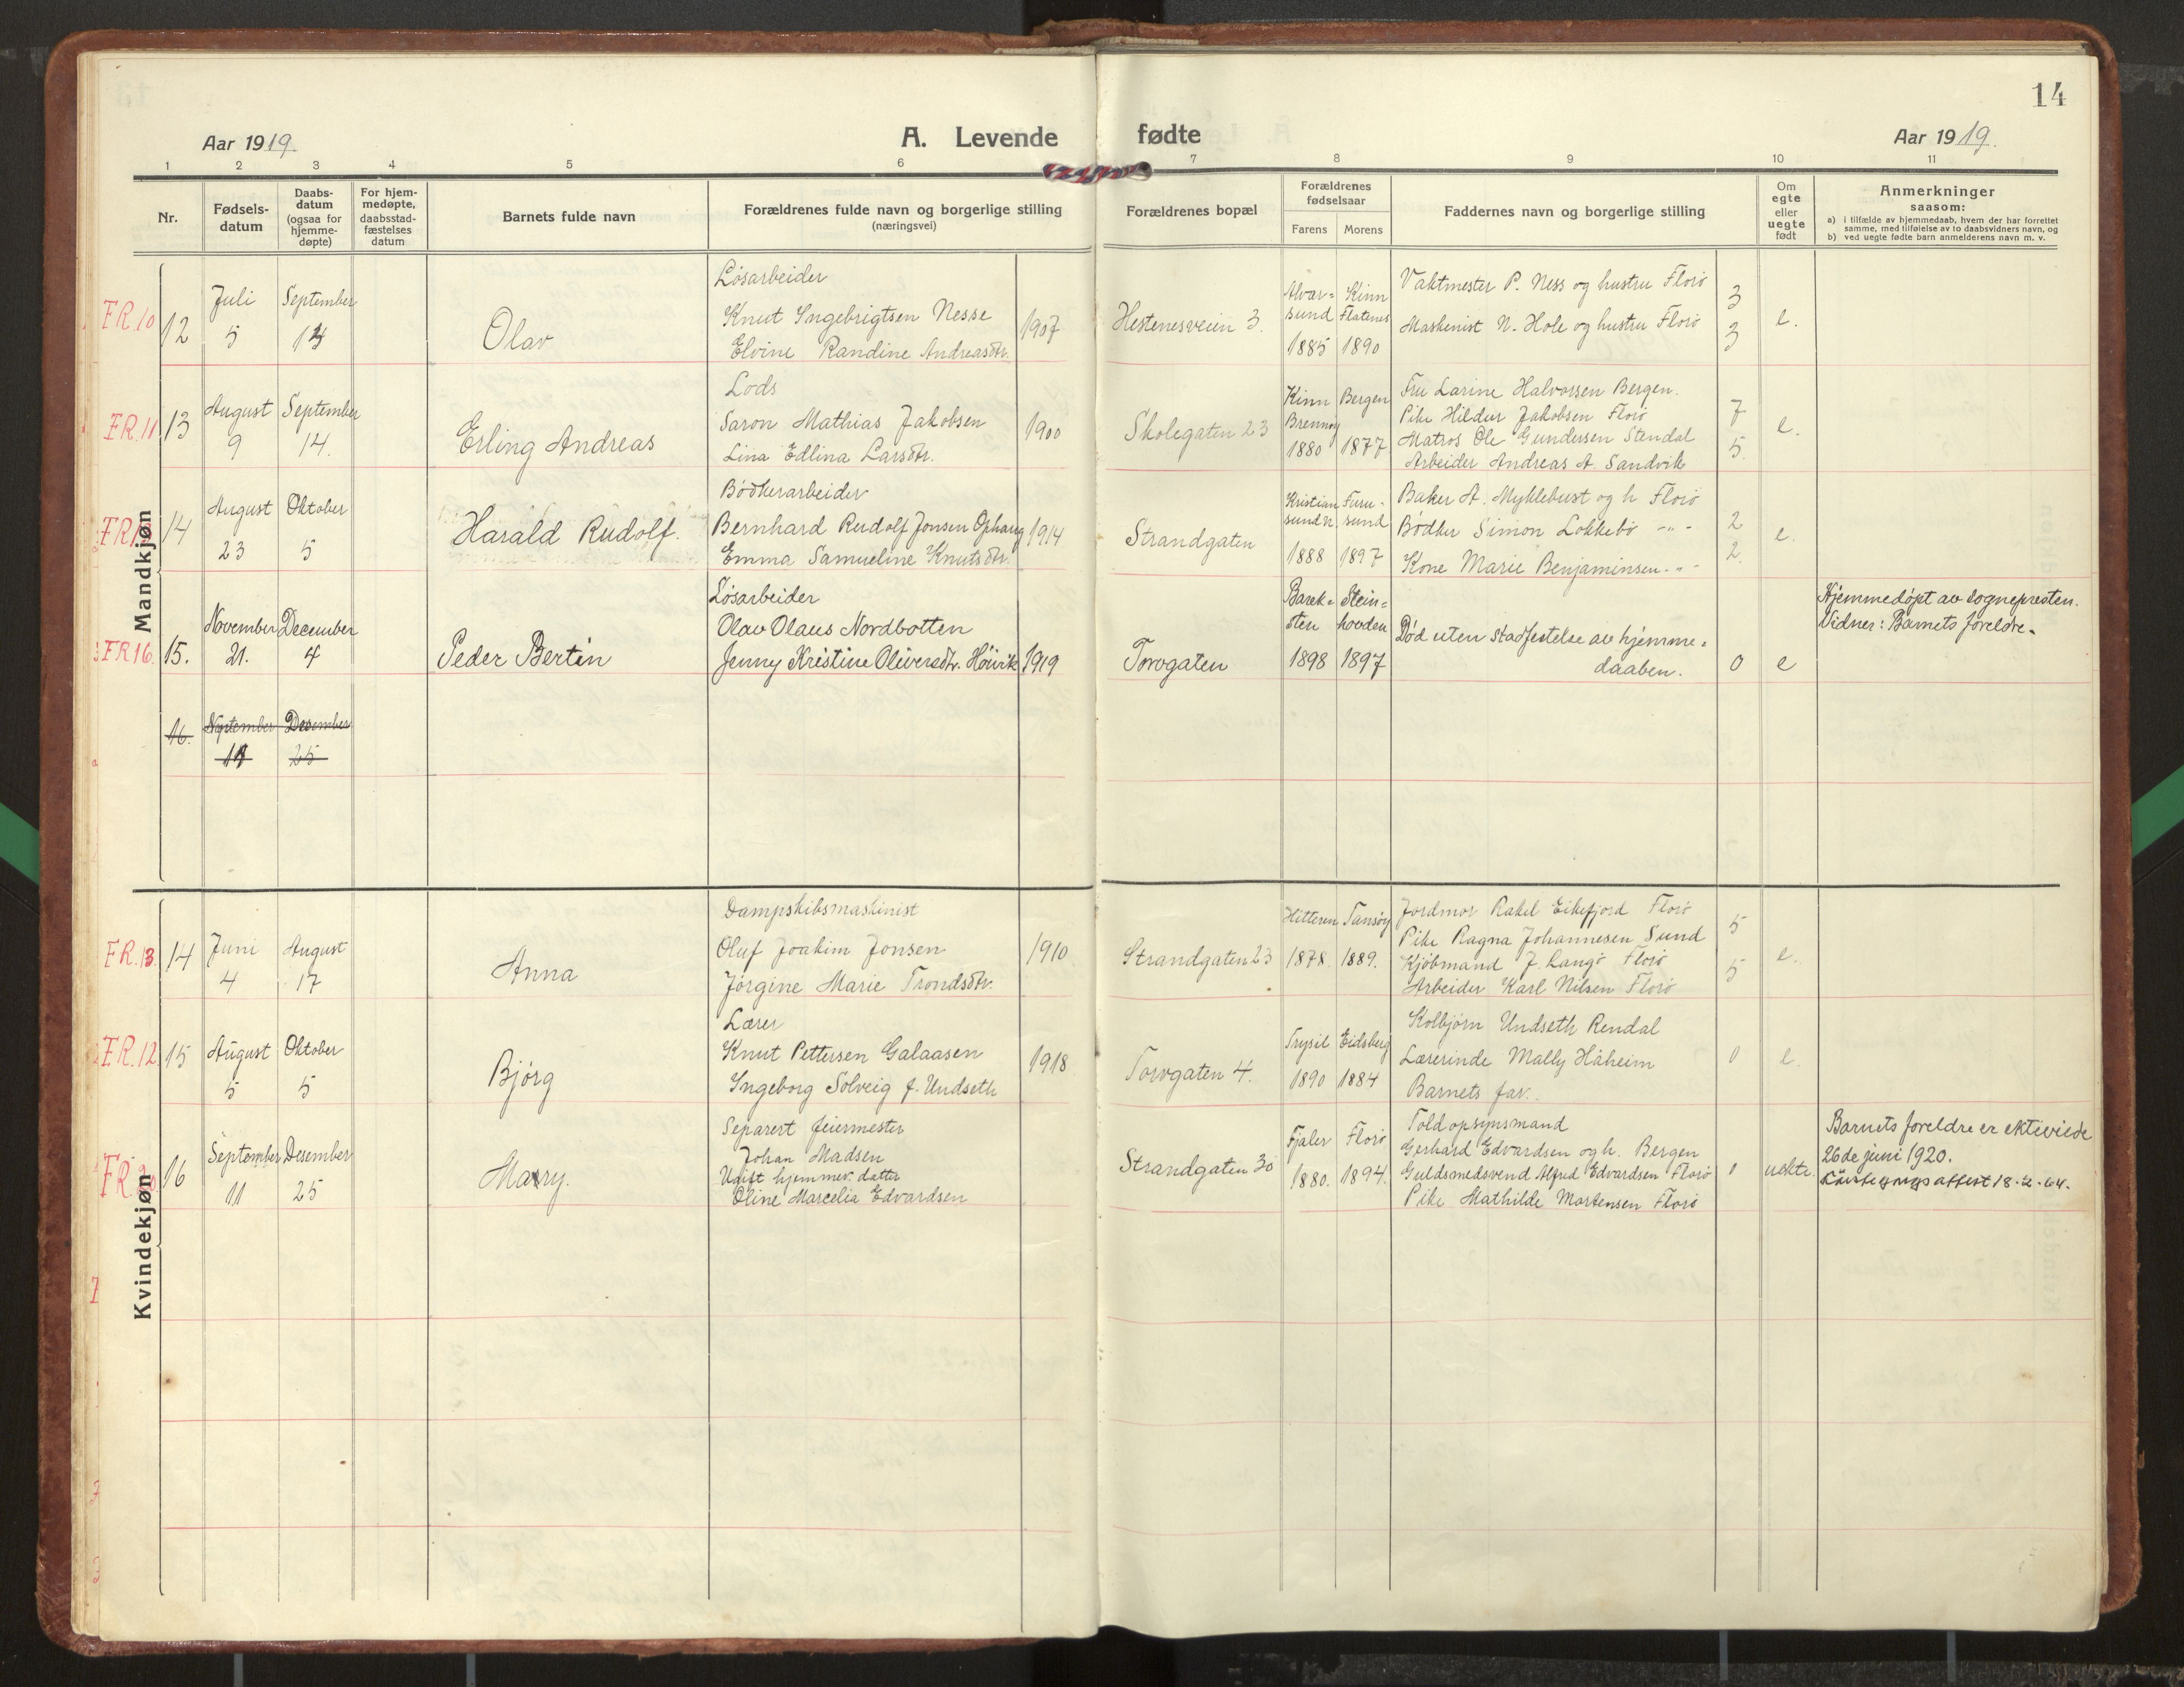 14
Aar 1919.
A. Levende fødte
Aar 1919.
1 2 3 4 5 6 7 8 9 10 11
Nr.
Fødsels-
datum
Daabs-
datum
(ogsaa for
hjemme-
døpte)
For hjem-
medøpte,
daabsstad-
fæstelses
datum
Barnets fulde navn
Forældrenes fulde navn og borgerlige stilling
(næringsvei)
Forældrenes bopæl
Forældrenes
fødselsaar
Farens Morens
Faddernes navn og borgerlige stilling
Om
egte
eller
uegte
født
Anmerkninger
saasom:
a) i tilfælde av hjemmedaab, hvem der har forrettet
samme, med tilføielse av to daabsvidners navn, og
b) ved uegte fødte barn anmelderens navn m. v.
Mandkjøn
FR.10
12
Juli
5
September
14
Olav
Løsarbeider
Knut Ingebrigtsen Nesse
Elvine Randine Andreasdtr.
1907
Hestenesveien 3.
Alvær-
sund
1885
Kinn
Flatenes
1890
Vaktmester P. Ness og hustru Florø
Maskinist N. Hole og hustru Florø
3
3
e.
FR.11
13
August
9
September
14.
Erling Andreas
Lods
Saron Mathias Jakobsen
Lina Edlina Larsdtr.
1900
Skolegaten 23
Kinn
Bremnøy
1880
Bergen
1877
Fru Larine Halvorsen Bergen.
Pike Hildur Jakobsen Florø
Matros Ole Gundersen Stendal
Arbeider Andreas A. Sandvik
7
5.
e.
14
August
23
Oktober
5
Harald Rudolf.
Bødkerarbeider
Bernhard Rudolf Jonsen Ophaug
Emma Samueline Knutsdtr.
1914
Strandgaten
Kristian
sund n.
1888
Furu-
sund
1897
Baker A. Myklebust og h Florø
Bødker Simon Løkkebø -"-
Kone Marie Benjaminsen -"-
2
2.
e.
FR16.
15.
November
21.
December
4
Peder Bertin
Løsarbeider
Olav Olaus Nordbotten
Jenny Kristine Oliversdtr. Høivik
1919
Torvgaten
Barek-
sten
1898
Stein-
hovden
1897
Død uten stadfestelse av hjemme-
daaben.
0
e
Hjemmedøpt av sognepresten.
Vidner: Barnets foreldre.
16.
September
11
Desember
25
Kvindekjøn
FR.13.
14
Juni
4
August
17
Anna
Dampskibsmaskinist
Oluf Joakim Jonsen
Jørgine Marie Trondsdtr.
1910
Strandgaten 23
Hitteren
1878.
Tansøy
1889.
Jordmor Rakel Eikefjord Florø
Pike Ragna Johannesen Sund
Kjøbmand J. Langø Florø
Arbeider Karl Nilsen Florø
5
5
e.
FR.12.
15
August
5
Oktober
5
Bjørg
Lærer
Knut Pettersen Galaasen
Ingeborg Solveig f. Undseth
1918
Torvgaten 4.
Trysil
1890
Eidsberg
1884
Kolbjørn Undseth Rendal
Lærerinde Mally Håheim
Barnets far.
0
e.
16
September
11
Desember
25
Marry.
Separert feiermester
Johan Madsen
Ugift hjemmev. datter
Oline Marcelia Edvardsen
Strandgaten 30
Fjaler
1880.
Florø
1894.
Toldopsynsmand
Gerhard Edvardsen og h. Bergen
Guldsmedsvend Alfred Edvardsen Florø
Pike Mathilde Mortensen Florø
0
uekte.
Barnets foreldre er ektevidde
26de juni 1920.